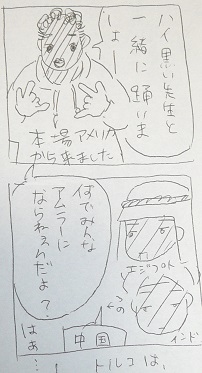 ハイ黒い先生と
一緒に踊りま
しょー
本場アメリカ
から来ました
何でみんな
アムラーに
ならねぇんだよ?
はぁ…
エジプト
インド
中国
トルコは、